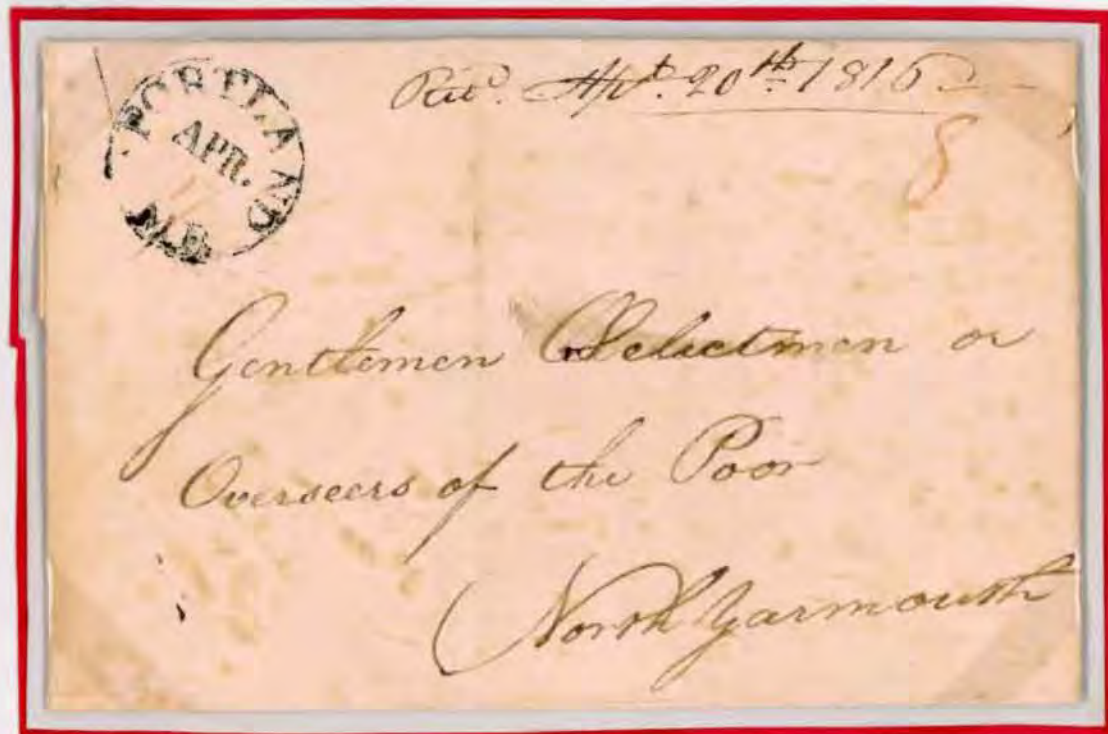 PORTLAND
APR.
ME
Recd. Apl. 20th 1816
8
Gentlemen Selectmen or
Overseers of the Poor
North Yarmouth